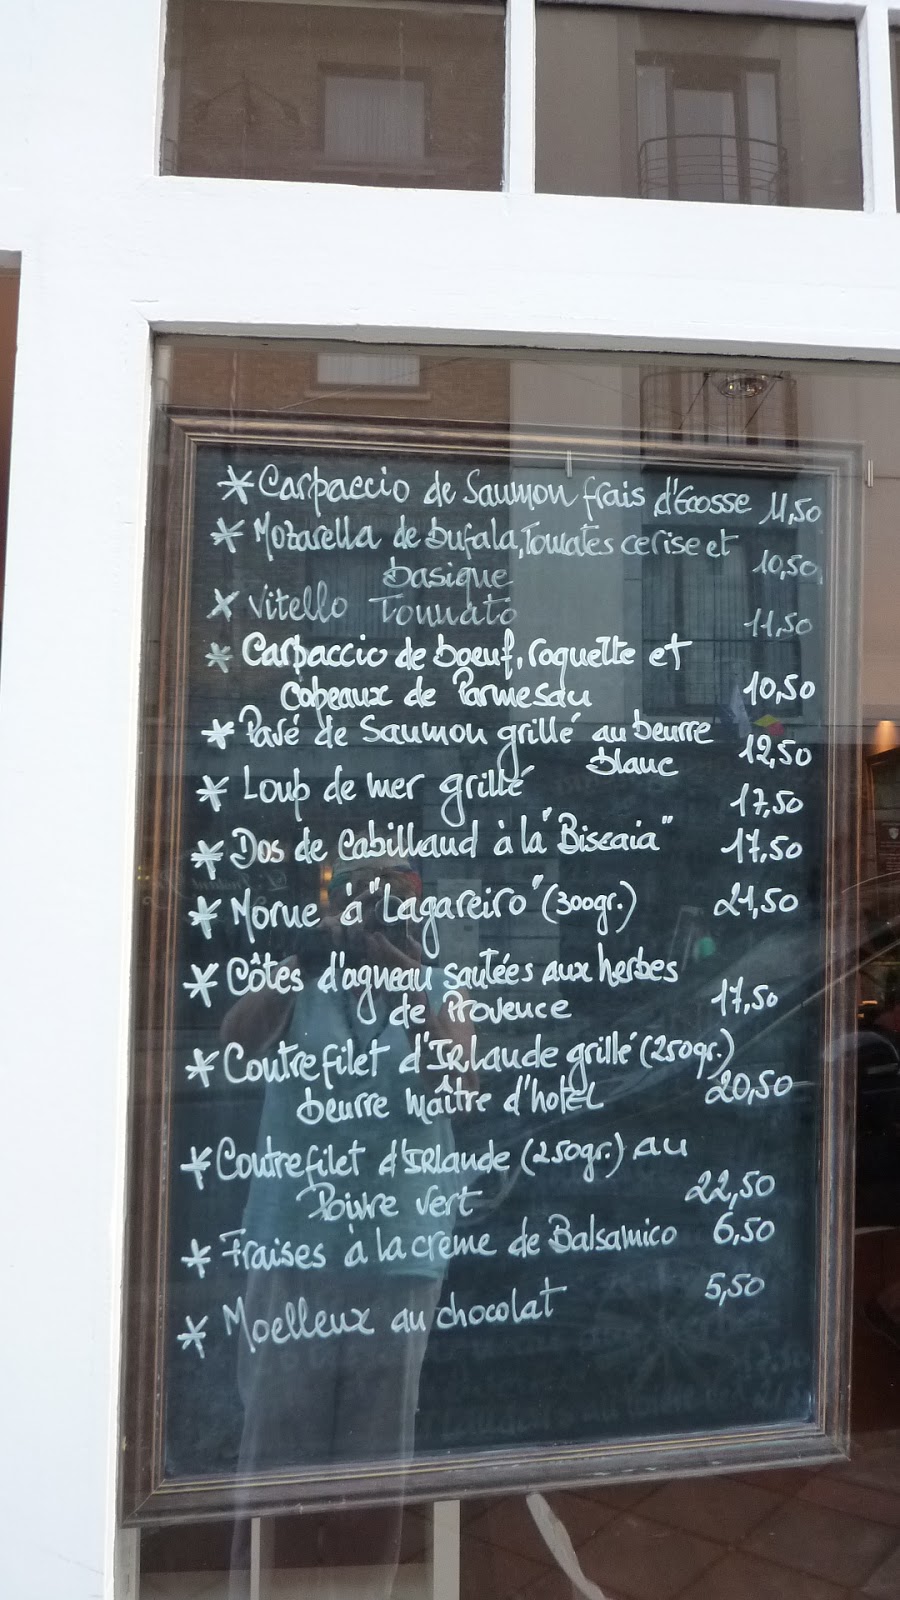 * Carpaccio de Saumon frais d'Ecosse 11,50
* Mozarella de bufala, Tomates cerise et
basique 10,50
* Vitello Tonnato 11,50
* Carpaccio de boeuf, roquette et
Copeaux de Parmesan 10,50
* Pavé de Saumon grillé au beurre
blanc 12,50
* Loup de mer grillé 17,50
* Dos de Cabillaud à la "Biscaia" 17,50
* Morue à "Lagareiro" (300gr.) 21,50
* Côtes d'agneau sautées aux herbes
de Provence 17,50
* Contrefilet d'Irlande grillé (250gr.)
beurre Maître d'hotel 20,50
* Contrefilet d'Irlande (250gr.) au
Poivre vert 22,50
* Fraises à la crème de Balsamico 6,50
* Moelleux au chocolat 5,50